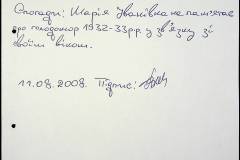 Спогади: Марія Іванівна не пам'ятає
про голодомор 1932-33рр. у зв'язку зі
своїм віком.
11.08.2008. Підпис: